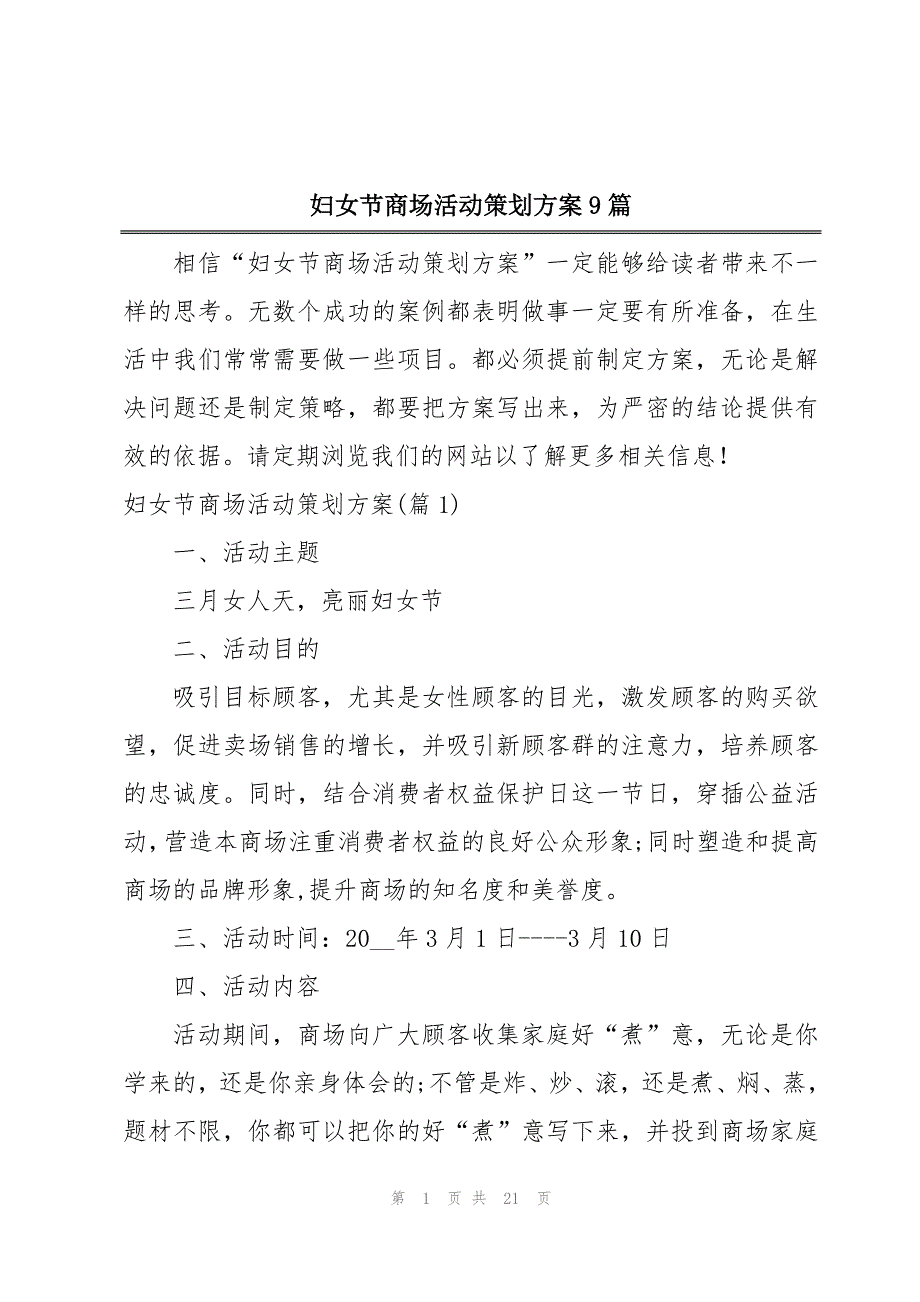 妇女节商场活动策划方案 9 篇
相信“妇女节商场活动策划方案”一定能够给读者带来不一
样的思考。无数个成功的案例都表明做事一定要有所准备，在生
活中我们常常需要做一些项目。都必须提前制定方案，无论是解
决问题还是制定策略，都要把方案写出来，为严密的结论提供有
效的依据。请定期浏览我们的网站以了解更多相关信息！
妇女节商场活动策划方案(篇 1)
一、活动主题
三月女人天，亮丽妇女节
二、活动目的
吸引目标顾客，尤其是女性顾客的目光，激发顾客的购买欲
望，促进卖场销售的增长，并吸引新顾客群的注意力，培养顾客
的忠诚度。同时，结合消费者权益保护日这一节日，穿插公益活
动,营造本商场注重消费者权益的良好公众形象;同时塑造和提高
商场的品牌形象,提升商场的知名度和美誉度。
三、活动时间：20__年 3 月 1 日----3 月 10 日
四、活动内容
活动期间，商场向广大顾客收集家庭好“煮”意，无论是你
学来的，还是你亲身体会的;不管是炸、炒、滚，还是煮、焖、蒸，
题材不限，你都可以把你的好“煮”意写下来，并投到商场家庭
第 1 页 共 21 页